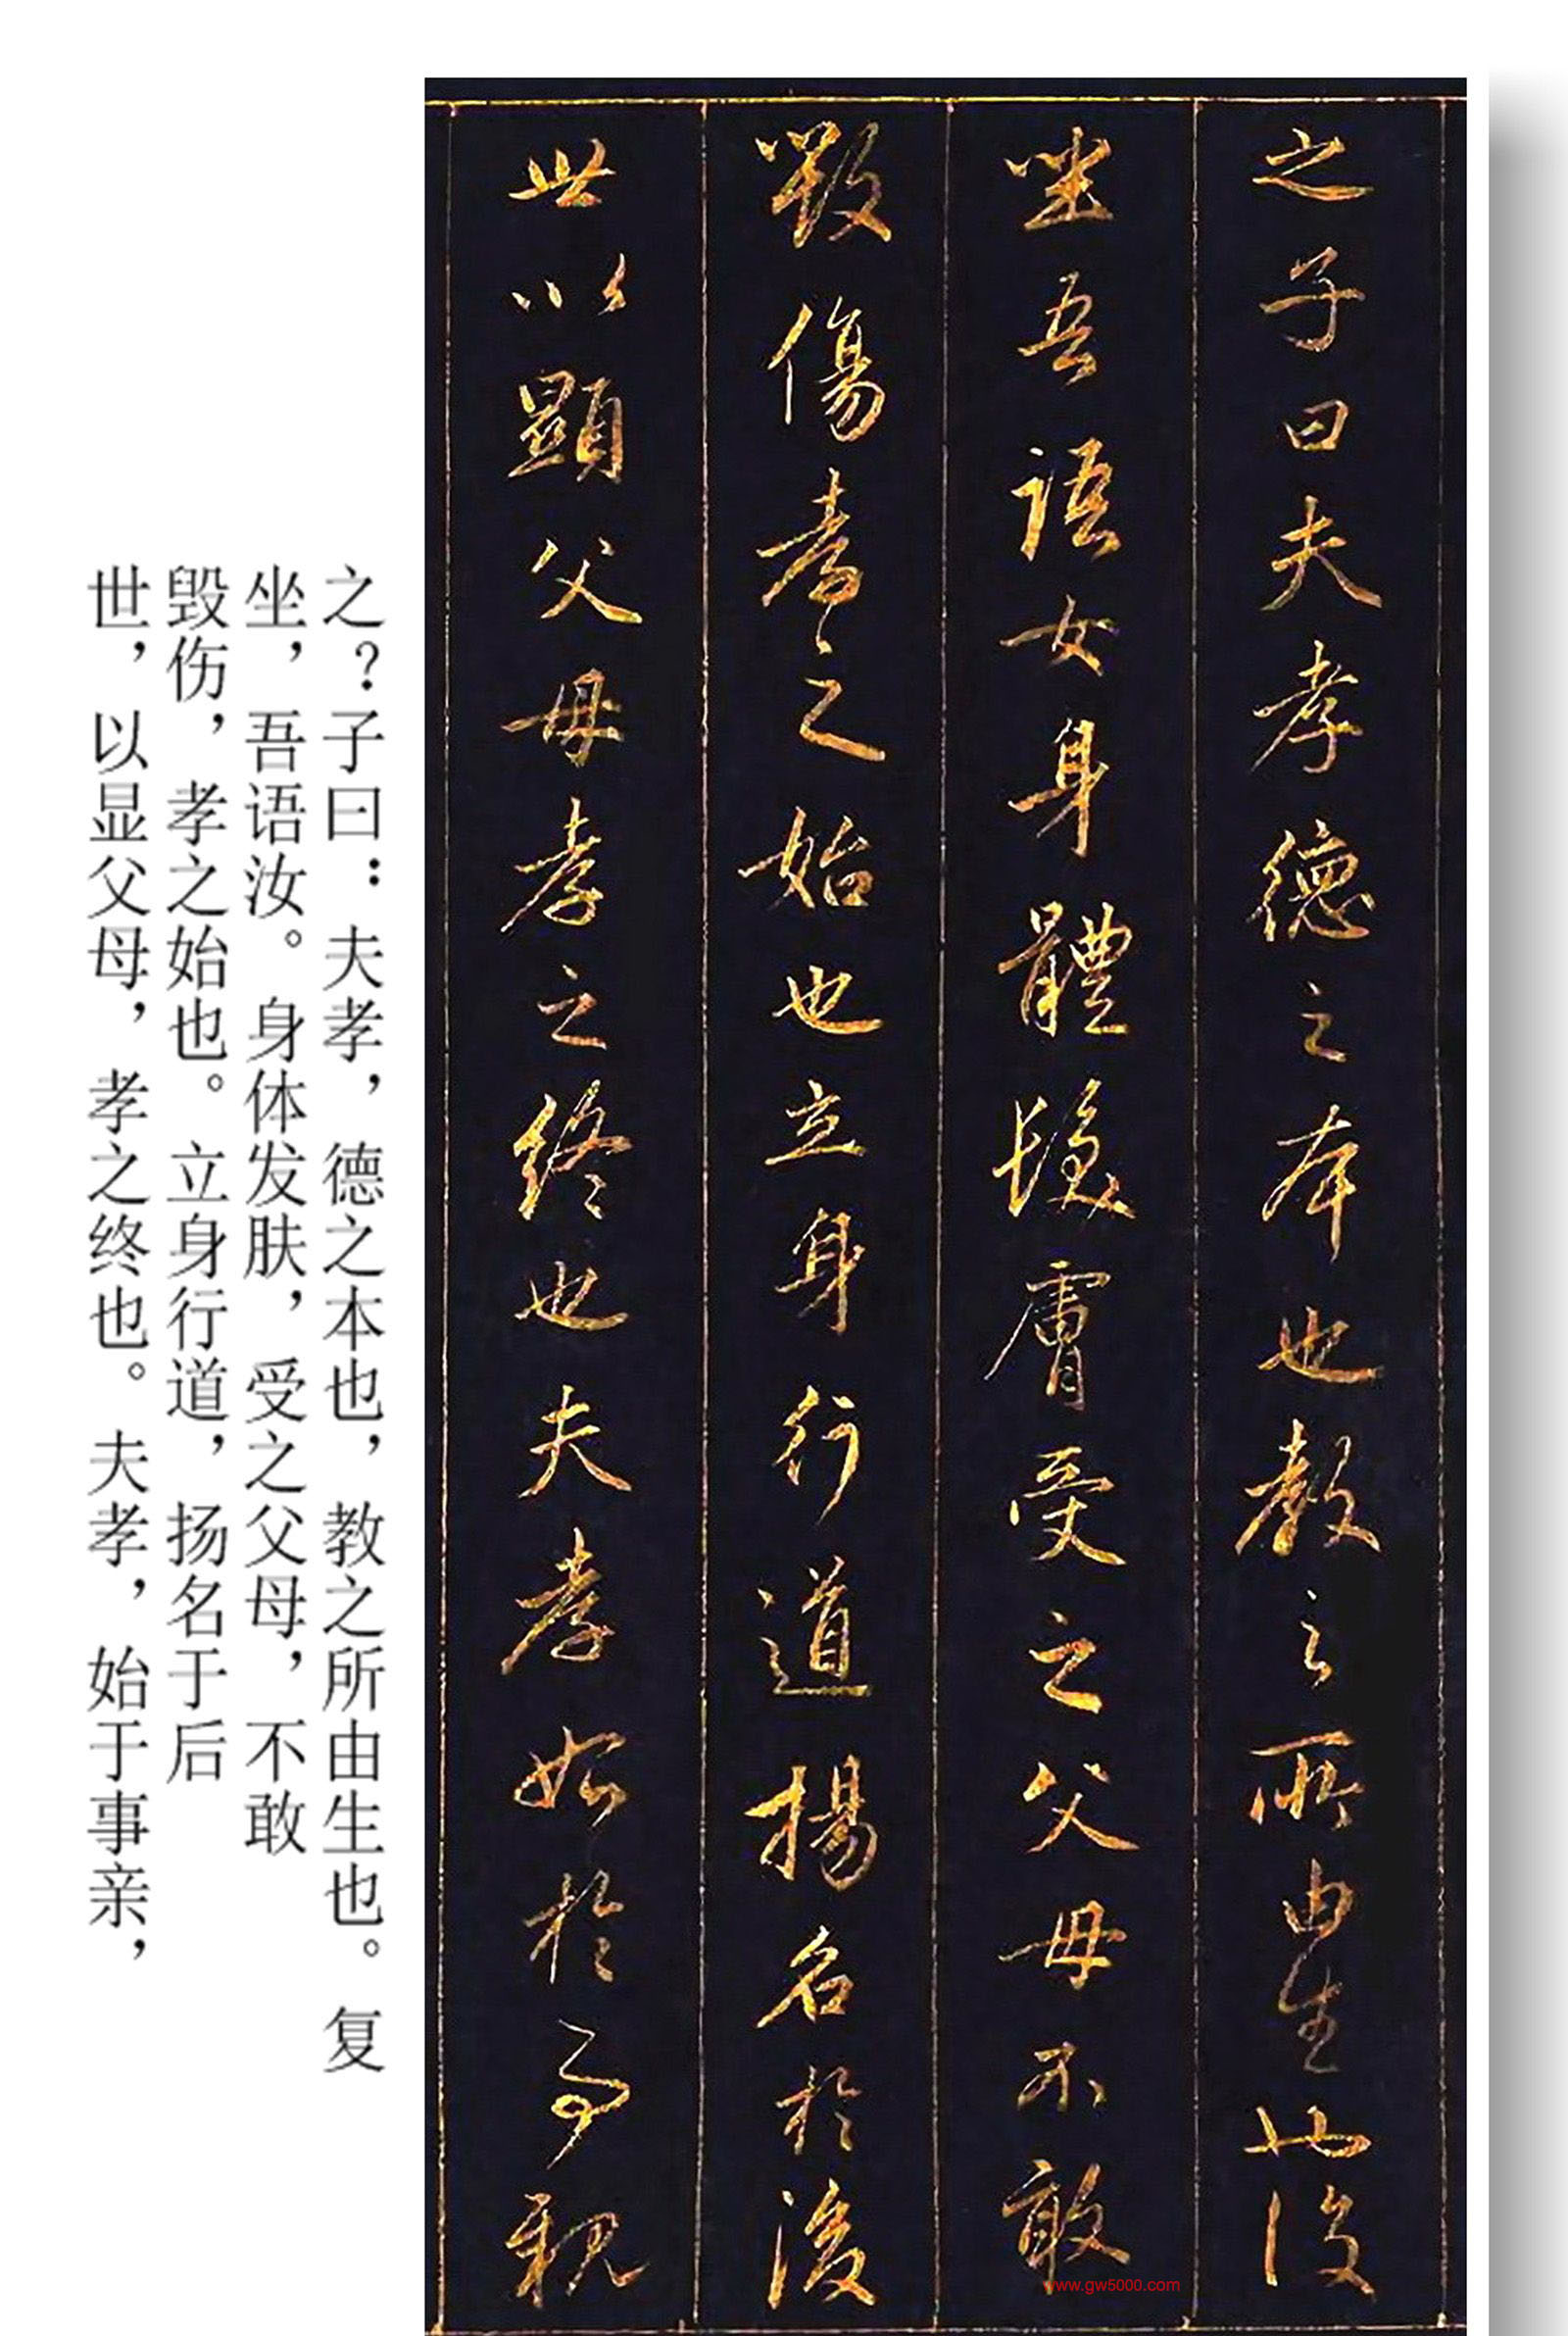 之子曰夫孝德之本也教之所由生也復
坐吾語女身體髮膚受之父母不敢
毀傷孝之始也立身行道揚名於後
世以顯父母孝之終也夫孝始於事親
之？子曰：夫孝，德之本也，教之所由生也。复
坐，吾语汝。身体发肤，受之父母，不敢
毁伤，孝之始也。立身行道，扬名于后
世，以显父母，孝之终也。夫孝，始于事亲，
www.gw5000.com